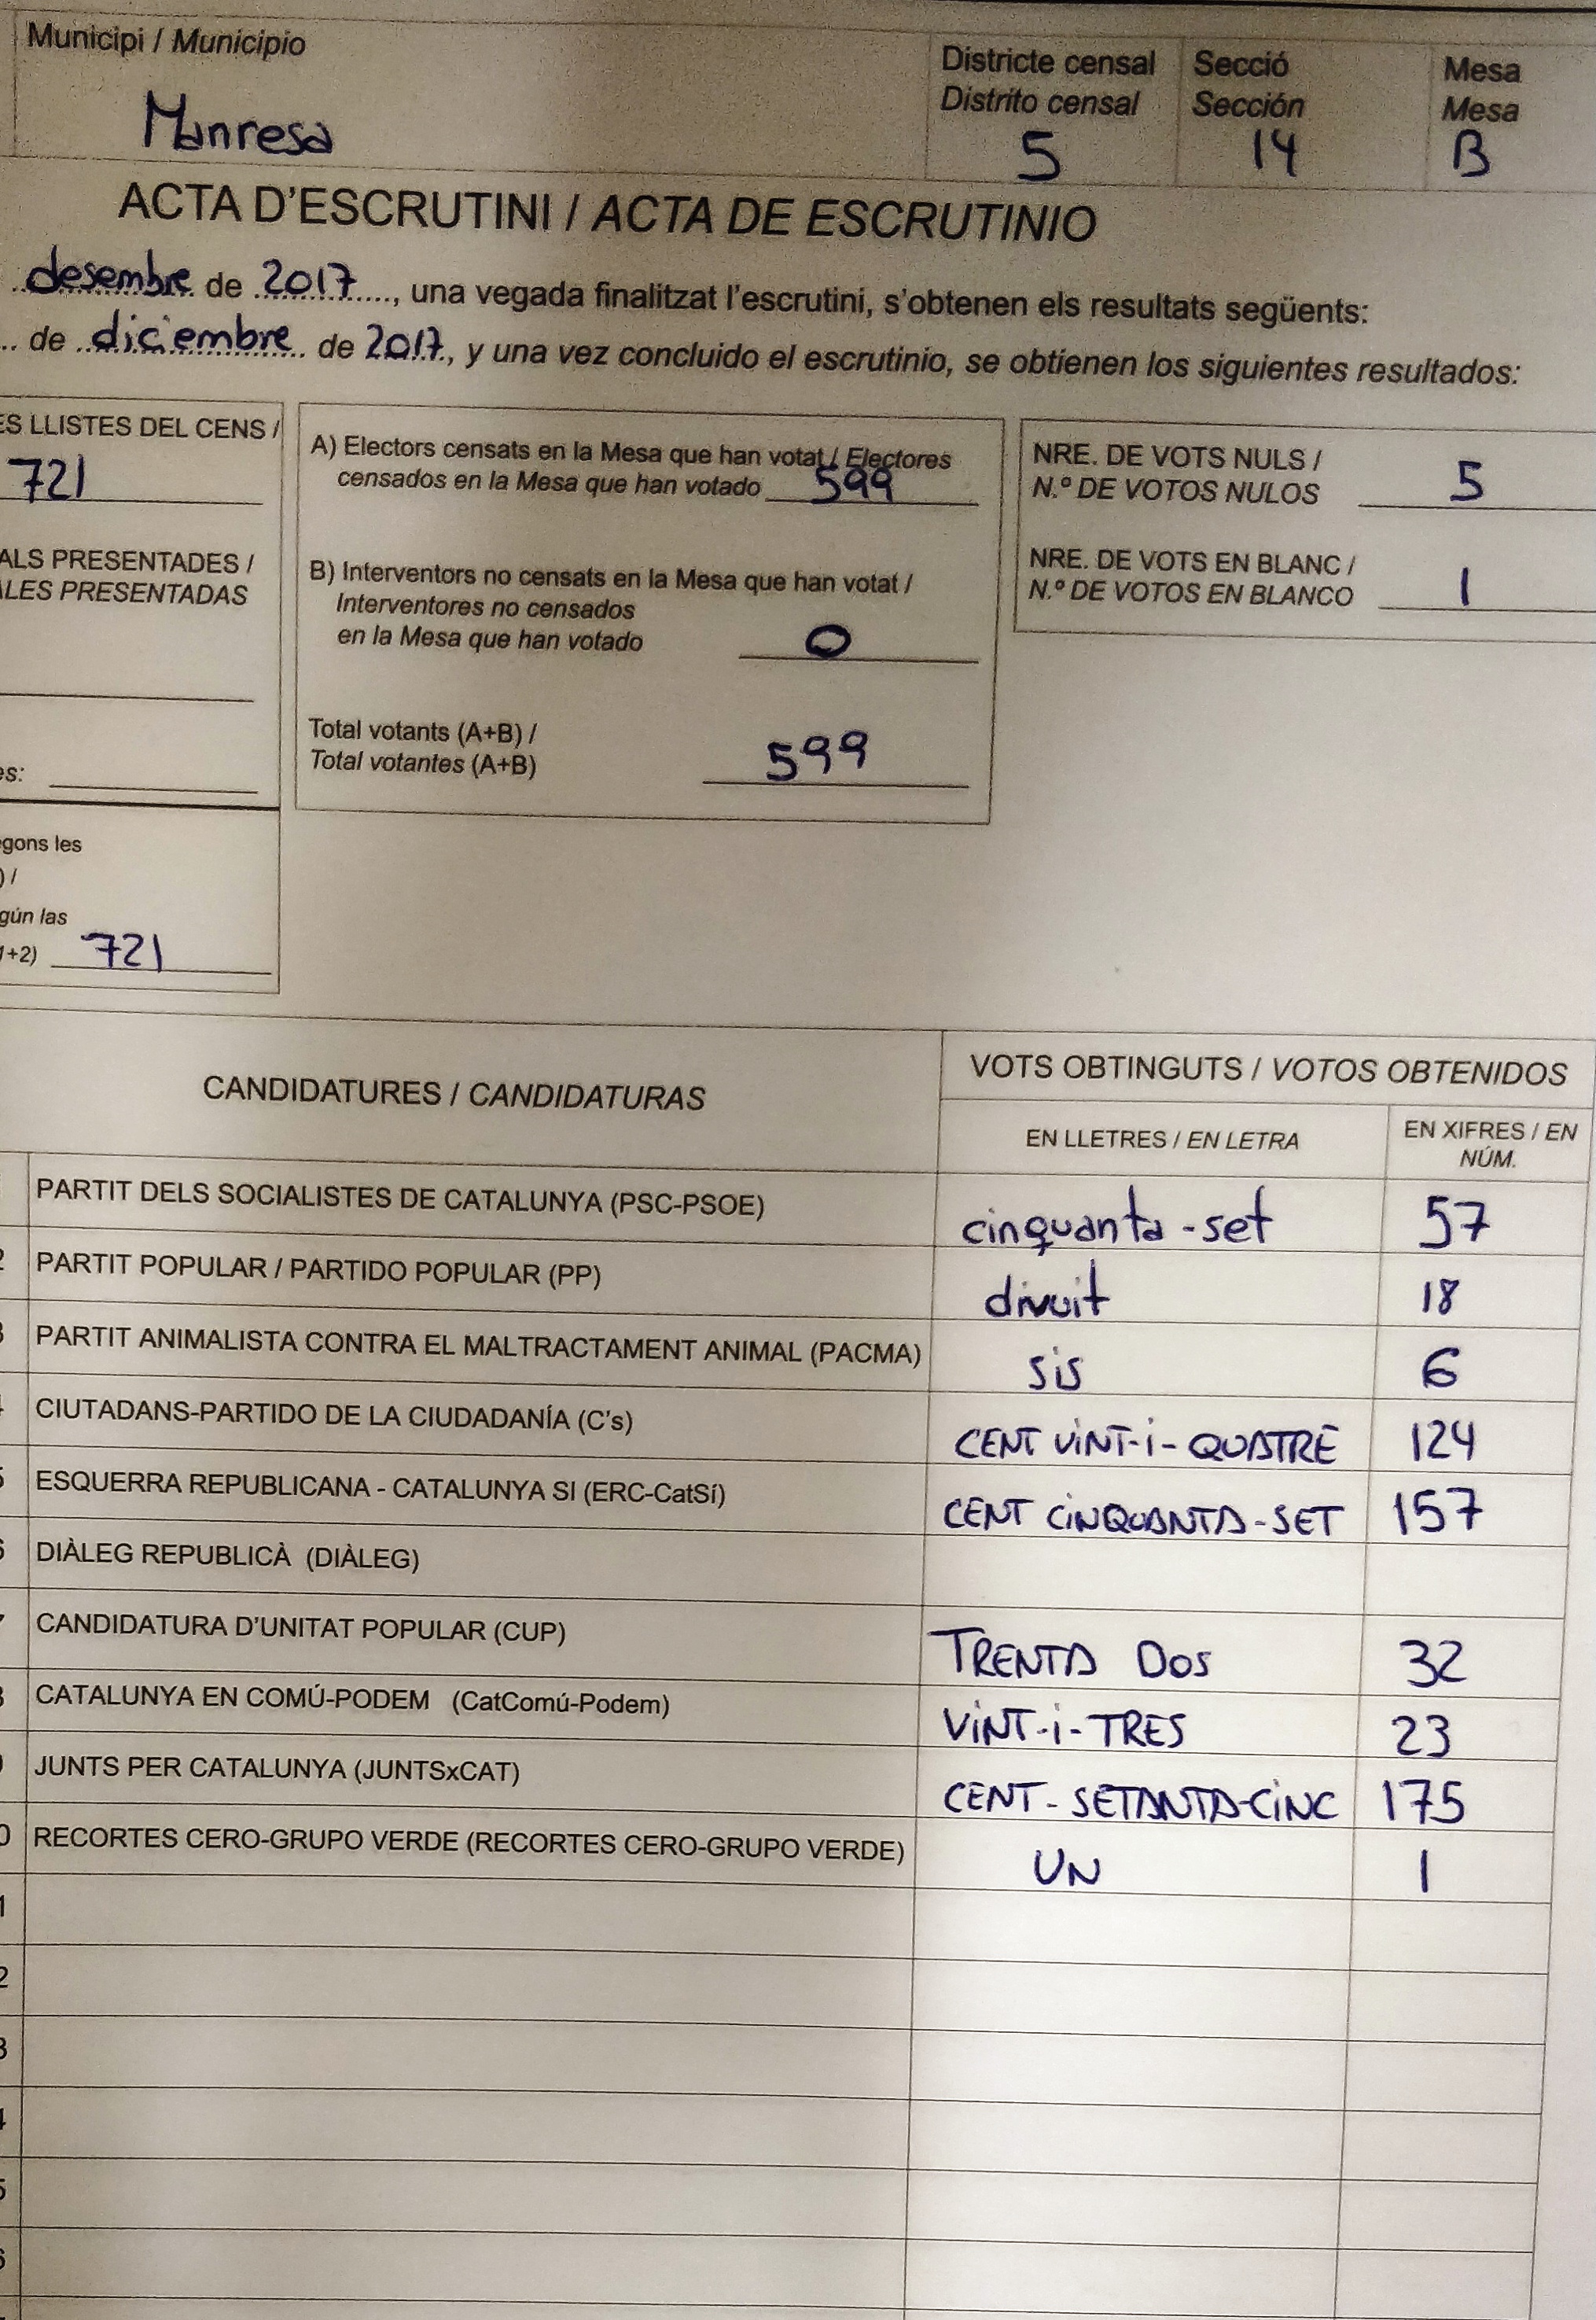 Municipi / Municipio
Manresa
Districte censal
Distrito censal
5
Secció
Sección
14
Mesa
Mesa
B
ACTA D'ESCRUTINI / ACTA DE ESCRUTINIO
desembre de 2017, una vegada finalitzat l'escrutini, s'obtenen els resultats següents:
de diciembre de 2017, y una vez concluido el escrutinio, se obtienen los siguientes resultados:
LLISTES DEL CENS /
721
PRESENTADES /
PRESENTADAS
gons les
gún las
1+2) 721
A) Electors censats en la Mesa que han votat / Electores
censados en la Mesa que han votado 599
B) Interventors no censats en la Mesa que han votat /
Interventores no censados
en la Mesa que han votado 0
Total votants (A+B) /
Total votantes (A+B) 599
NRE. DE VOTS NULS /
N.º DE VOTOS NULOS 5
NRE. DE VOTS EN BLANC /
N.º DE VOTOS EN BLANCO 1
CANDIDATURES / CANDIDATURAS
VOTS OBTINGUTS / VOTOS OBTENIDOS
EN LLETRES / EN LETRA
EN XIFRES / EN
NÚM.
PARTIT DELS SOCIALISTES DE CATALUNYA (PSC-PSOE) cinquanta-set 57
PARTIT POPULAR / PARTIDO POPULAR (PP) divuit 18
PARTIT ANIMALISTA CONTRA EL MALTRACTAMENT ANIMAL (PACMA) sis 6
CIUTADANS-PARTIDO DE LA CIUDADANÍA (C's) CENT ViNT-i-QUATRE 124
ESQUERRA REPUBLICANA - CATALUNYA SI (ERC-CatSí) CENT CiNQUANTA-SET 157
DIÀLEG REPUBLICÀ (DIÀLEG)
CANDIDATURA D'UNITAT POPULAR (CUP) TRENTA DOS 32
CATALUNYA EN COMÚ-PODEM (CatComú-Podem) ViNT-i-TRES 23
JUNTS PER CATALUNYA (JUNTSxCAT) CENT-SETANTA-CiNC 175
RECORTES CERO-GRUPO VERDE (RECORTES CERO-GRUPO VERDE) UN 1